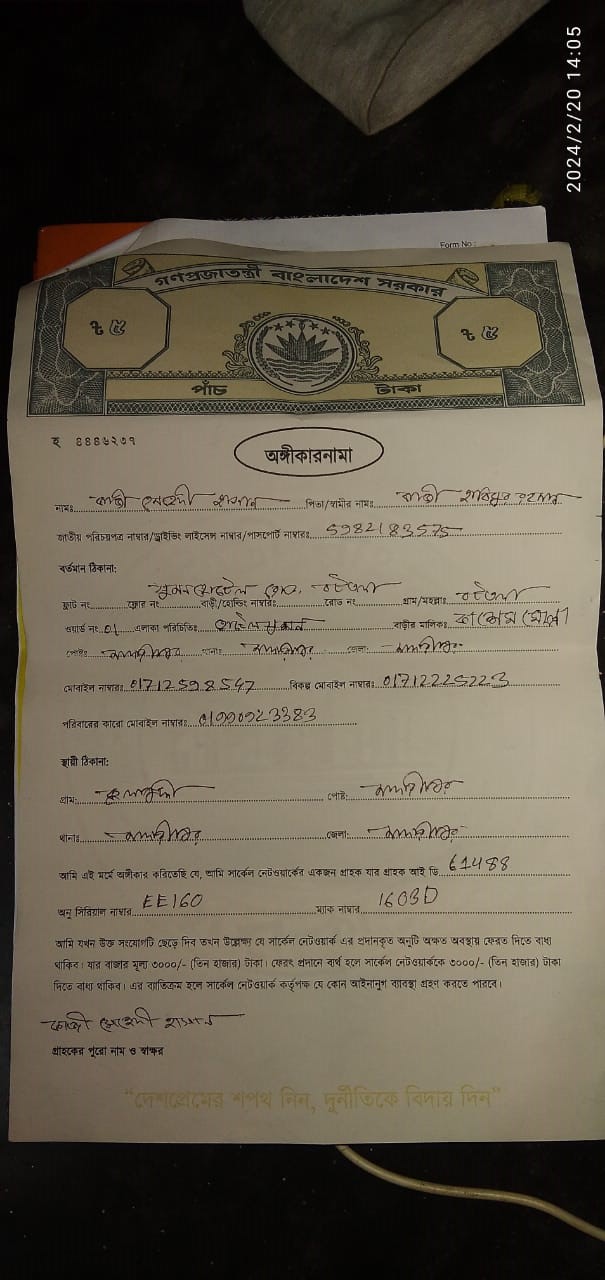 2024/2/20 14:05
Form No :
গণপ্রজাতন্ত্রী বাংলাদেশ সরকার
৳ ৫
৳ ৫
পাঁচ টাকা
হ ৪৪৪৬২৩৭
অঙ্গীকারনামা
নামঃ কাজী মেহেদী হাসান পিতা/স্বামীর নামঃ কাজী হাবিবুর রহমান
জাতীয় পরিচয়পত্র নাম্বার/ড্রাইভিং লাইসেন্স নাম্বার/পাসপোর্ট নাম্বারঃ 5982183575
বর্তমান ঠিকানা:
ফ্লাট নং ফ্লোর নং বাড়ী/হোল্ডিং নাম্বারঃ রোড নং গ্রাম/মহল্লাঃ
ওয়ার্ড নং 01 এলাকা পরিচিতিঃ বাড়ীর মালিকঃ
পোষ্টঃ মাদারীপুর থানাঃ মাদারীপুর জেলা: মাদারীপুর
মোবাইল নাম্বারঃ 01712598547 বিকল্প মোবাইল নাম্বারঃ 01712225223
পরিবারের কারো মোবাইল নাম্বারঃ 01990923383
স্থায়ী ঠিকানা:
গ্রাম: পোষ্ট: মাদারীপুর
থানাঃ মাদারীপুর জেলা: মাদারীপুর
আমি এই মর্মে অঙ্গীকার করিতেছি যে, আমি সার্কেল নেটওয়ার্কের একজন গ্রাহক যার গ্রাহক আই ডি 61488
অনু সিরিয়াল নাম্বার EE160 ম্যাক নাম্বার 160BD
আমি যখন উক্ত সংযোগটি ছেড়ে দিব তখন উল্লেক্ষ্য যে সার্কেল নেটওয়ার্ক এর প্রদানকৃত অনুটি অক্ষত অবস্থায় ফেরত দিতে বাধ্য
থাকিব। যার বাজার মূল্য ৩০০০/- (তিন হাজার) টাকা। ফেরৎ প্রদানে ব্যর্থ হলে সার্কেল নেটওয়ার্ককে ৩০০০/- (তিন হাজার) টাকা
দিতে বাধ্য থাকিব। এর ব্যতিক্রম হলে সার্কেল নেটওয়ার্ক কর্তৃপক্ষ যে কোন আইনানুগ ব্যাবস্থা গ্রহণ করতে পারবে।
কাজী মেহেদী হাসান
গ্রাহকের পুরো নাম ও স্বাক্ষর
“দেশপ্রেমের শপথ নিন, দুর্নীতিকে বিদায় দিন”